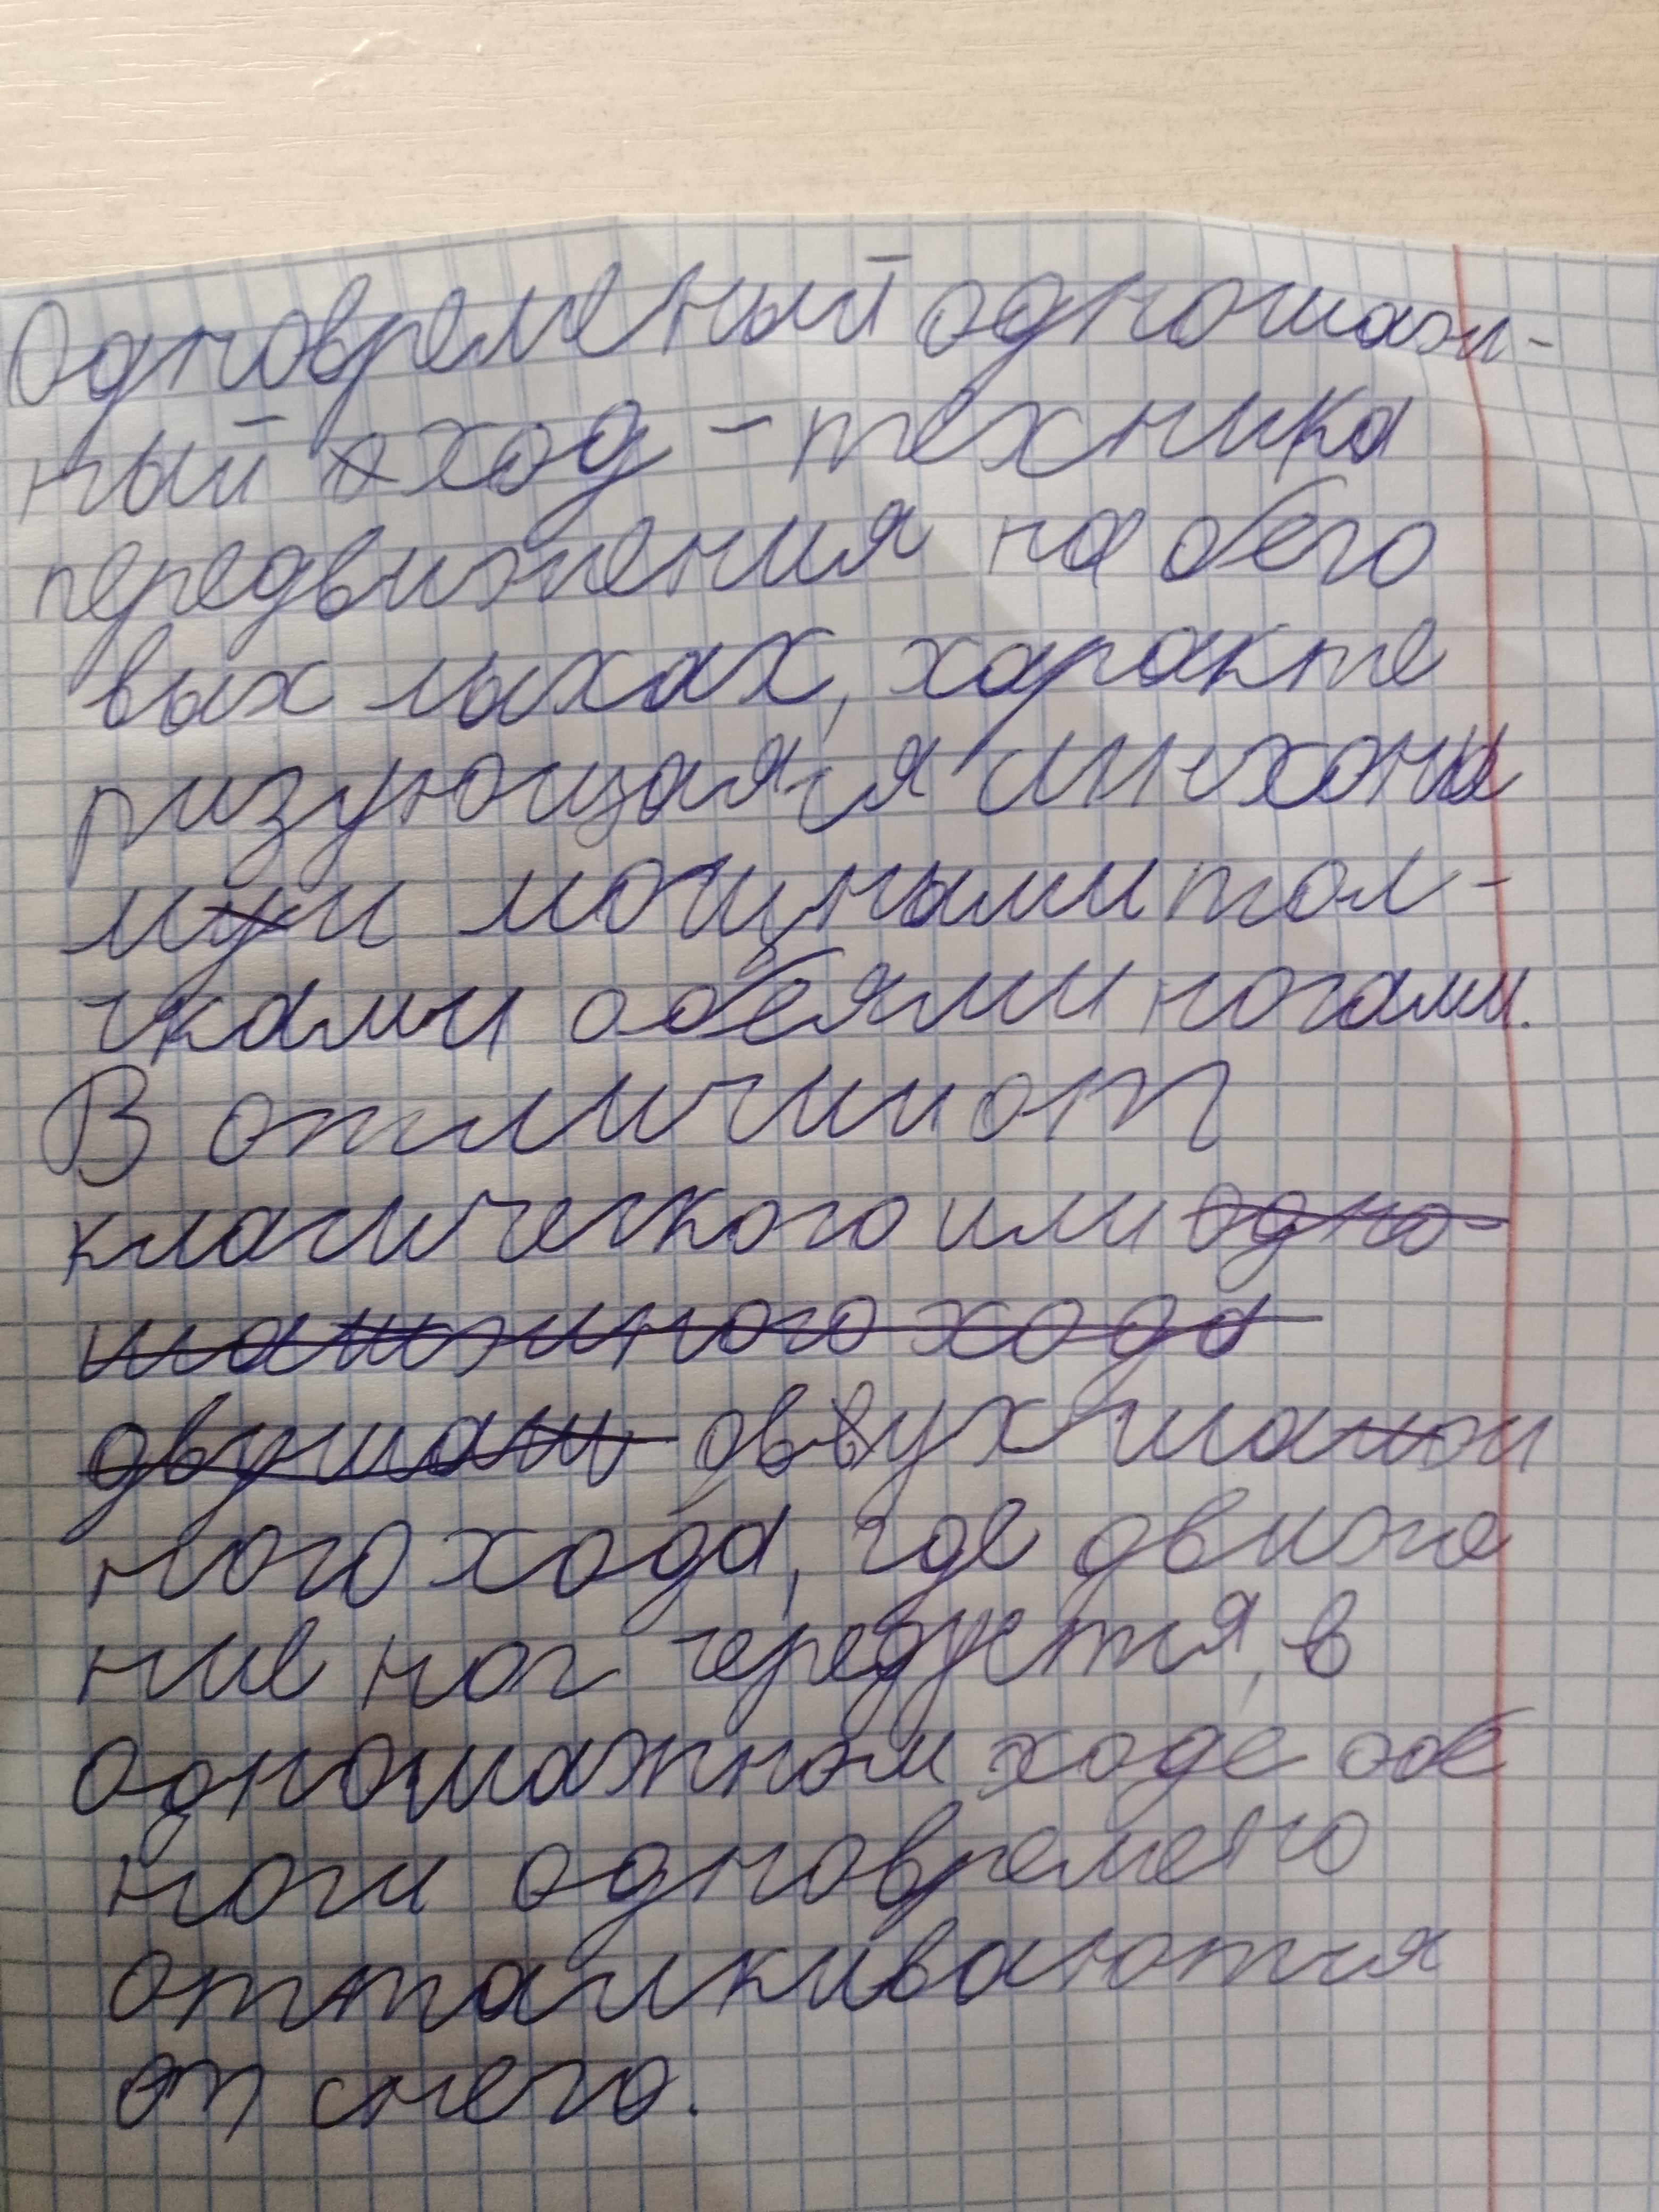 Одновременый одношаж-
ный ход - техника
передвижения на бего
вых лыхах, характе
ризующаяся синхоны
ми мощными тол-
чками обеями ногами.
В отличии от
класического или одно-
шажного хода
двушаш двухшажн
ного хода, где движе
ние ног чередуется, в
одношажном ходе обе
ноги одновремено
отталкиваются
от снега.